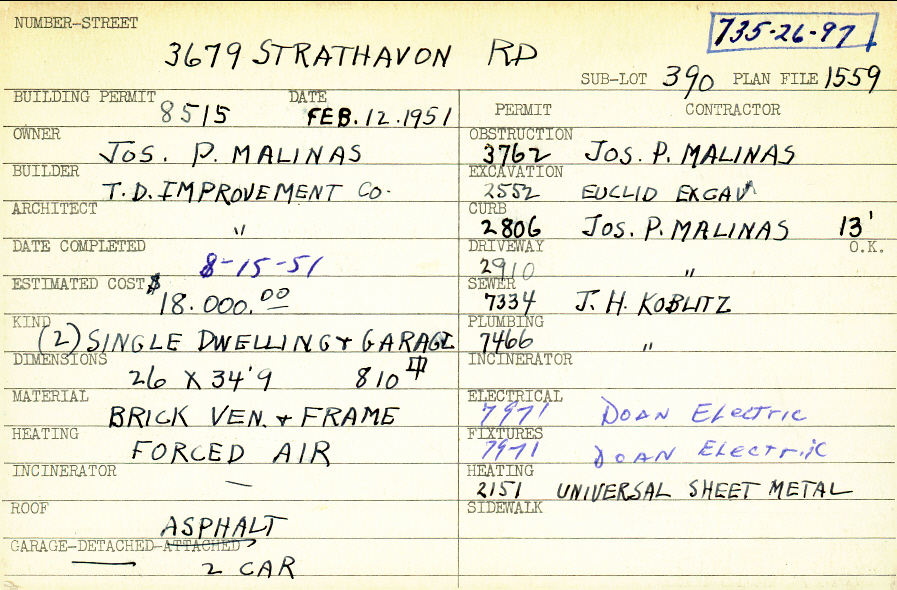 NUMBER-STREET
735-26-97
3679 STRATHAVON RD
SUB-LOT 390 PLAN FILE 1559
BUILDING PERMIT 8515 DATE FEB. 12. 1951
OWNER JOS. P. MALINAS
BUILDER T.D. IMPROVEMENT CO.
ARCHITECT "
DATE COMPLETED 8-15-51
ESTIMATED COST $ 18.000.00
KIND (2) SINGLE DWELLING & GARAGE
DIMENSIONS 26 X 34'9 810
MATERIAL BRICK VEN. & FRAME
HEATING FORCED AIR
INCINERATOR —
ROOF ASPHALT
GARAGE-DETACHED-ATTACHED 2 CAR
PERMIT CONTRACTOR
OBSTRUCTION 3762 JOS. P. MALINAS
EXCAVATION 2552 EUCLID EXCAV
CURB 2806 JOS. P. MALINAS 13' O.K.
DRIVEWAY 2910 "
SEWER 7334 J. H. KOBLITZ
PLUMBING 7466 "
INCINERATOR
ELECTRICAL 7971 DOAN ELECTRIC
FIXTURES 7971 DOAN ELECTRIC
HEATING 2151 UNIVERSAL SHEET METAL
SIDEWALK